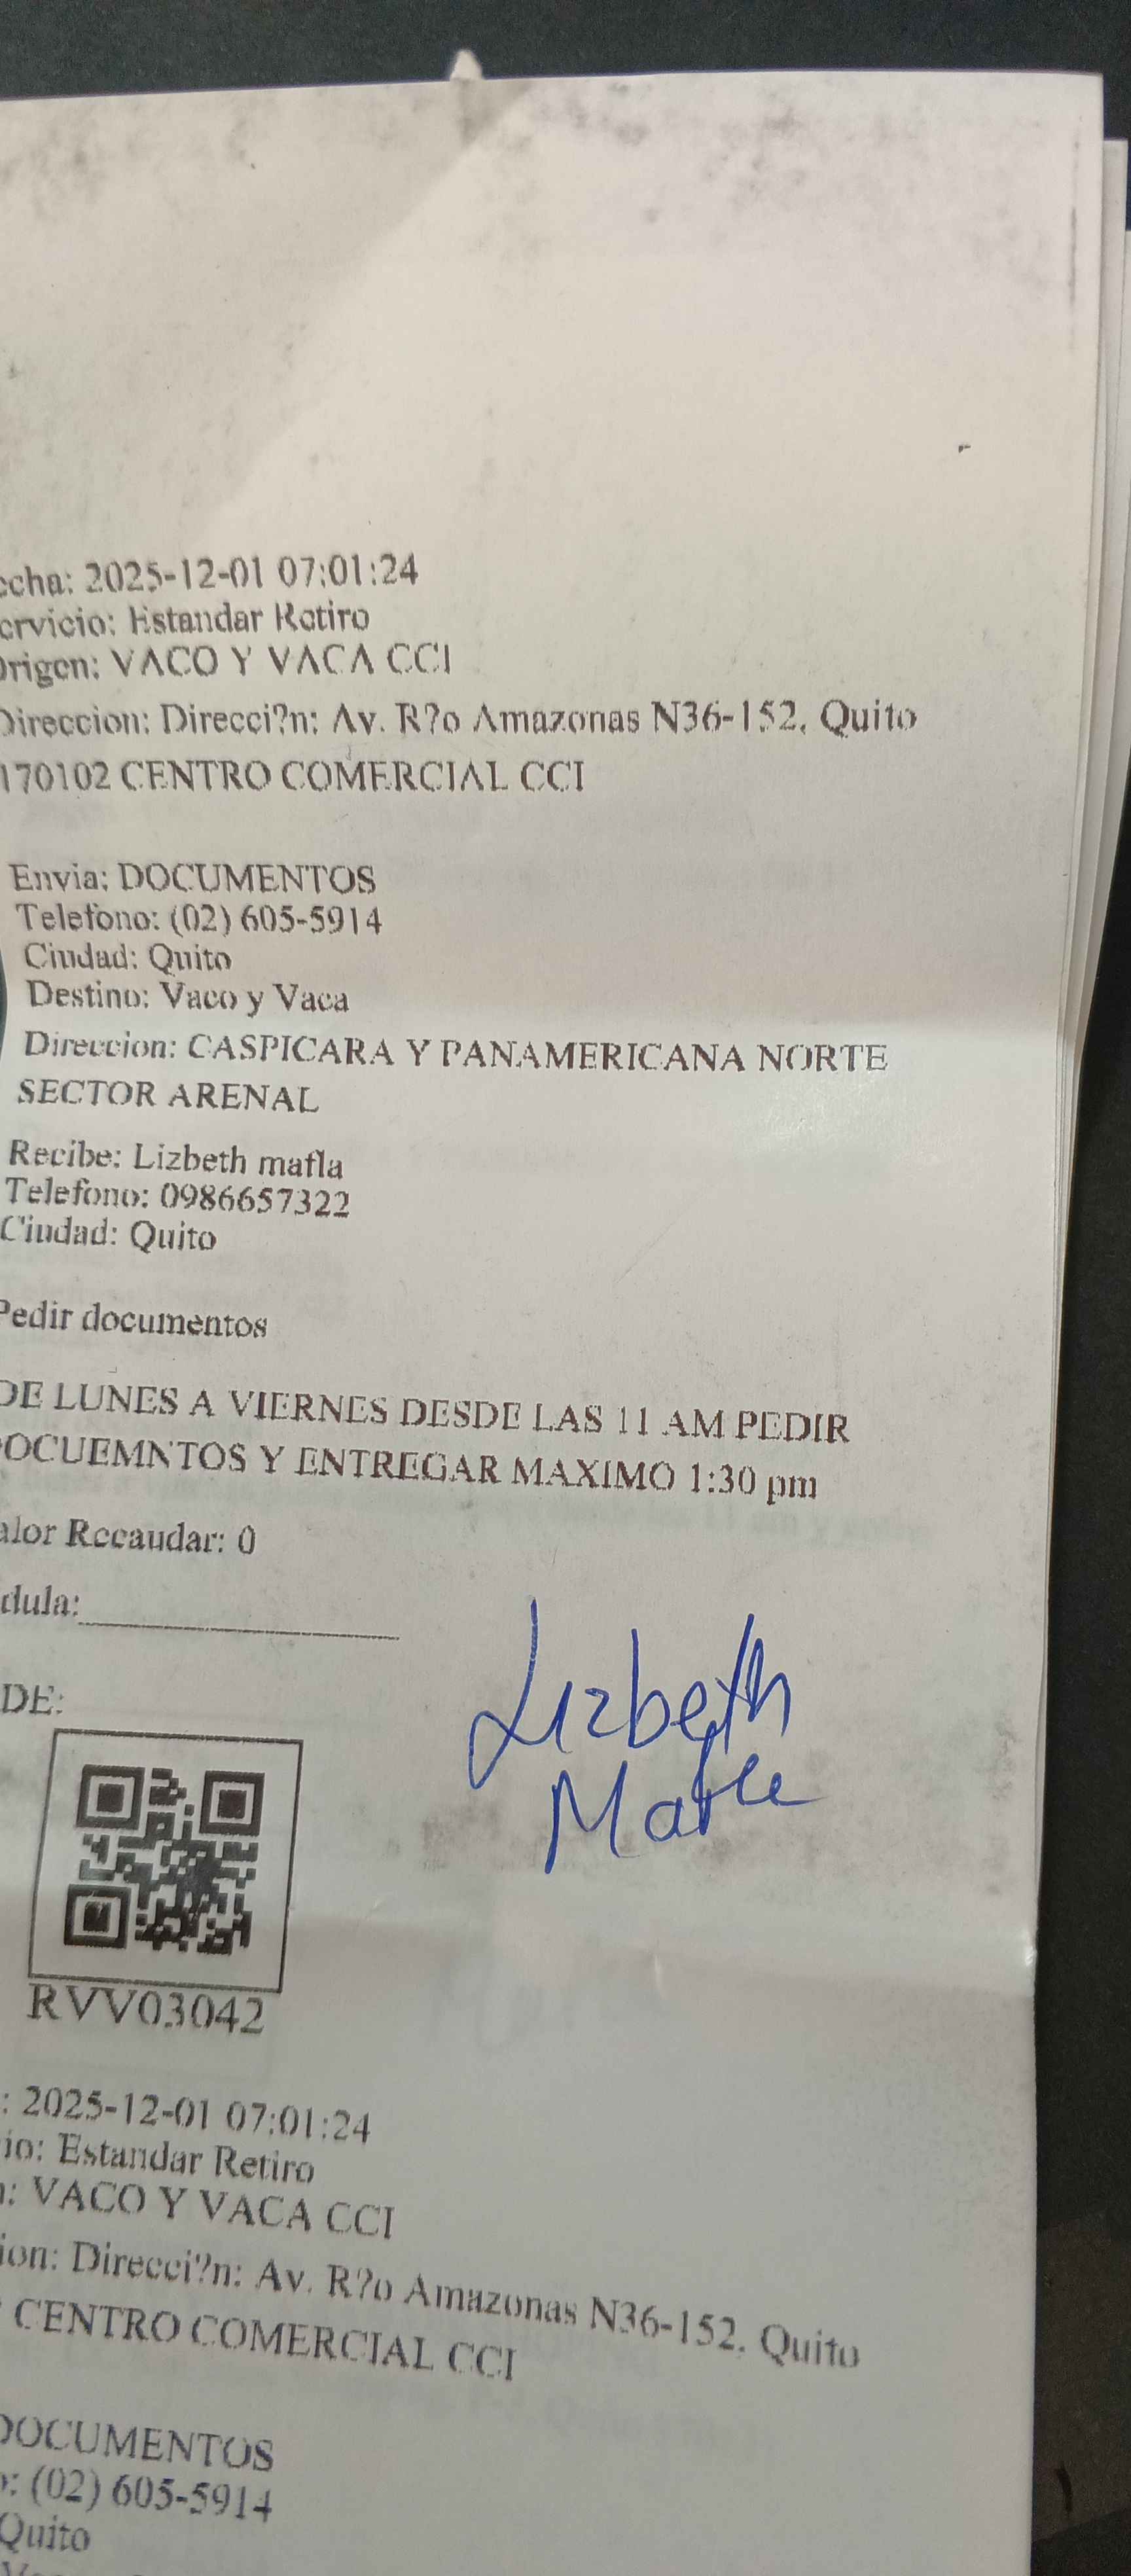 echa: 2025-12-01 07:01:24
ervicio: Estandar Retiro
Origen: VACO Y VACA CCI
Direccion: Direcci?n: Av. R?o Amazonas N36-152, Quito
170102 CENTRO COMERCIAL CCI
Envia: DOCUMENTOS
Telefono: (02) 605-5914
Ciudad: Quito
Destino: Vaco y Vaca
Direccion: CASPICARA Y PANAMERICANA NORTE
SECTOR ARENAL
Recibe: Lizbeth mafla
Telefono: 0986657322
Ciudad: Quito
Pedir documentos
DE LUNES A VIERNES DESDE LAS 11 AM PEDIR
DOCUEMNTOS Y ENTREGAR MAXIMO 1:30 pm
alor Recaudar: 0
dula:
Lizbeth
Mafla
DE:
RVV03042
: 2025-12-01 07:01:24
io: Estandar Retiro
: VACO Y VACA CCI
ion: Direcci?n: Av. R?o Amazonas N36-152, Quito
CENTRO COMERCIAL CCI
DOCUMENTOS
: (02) 605-5914
Quito